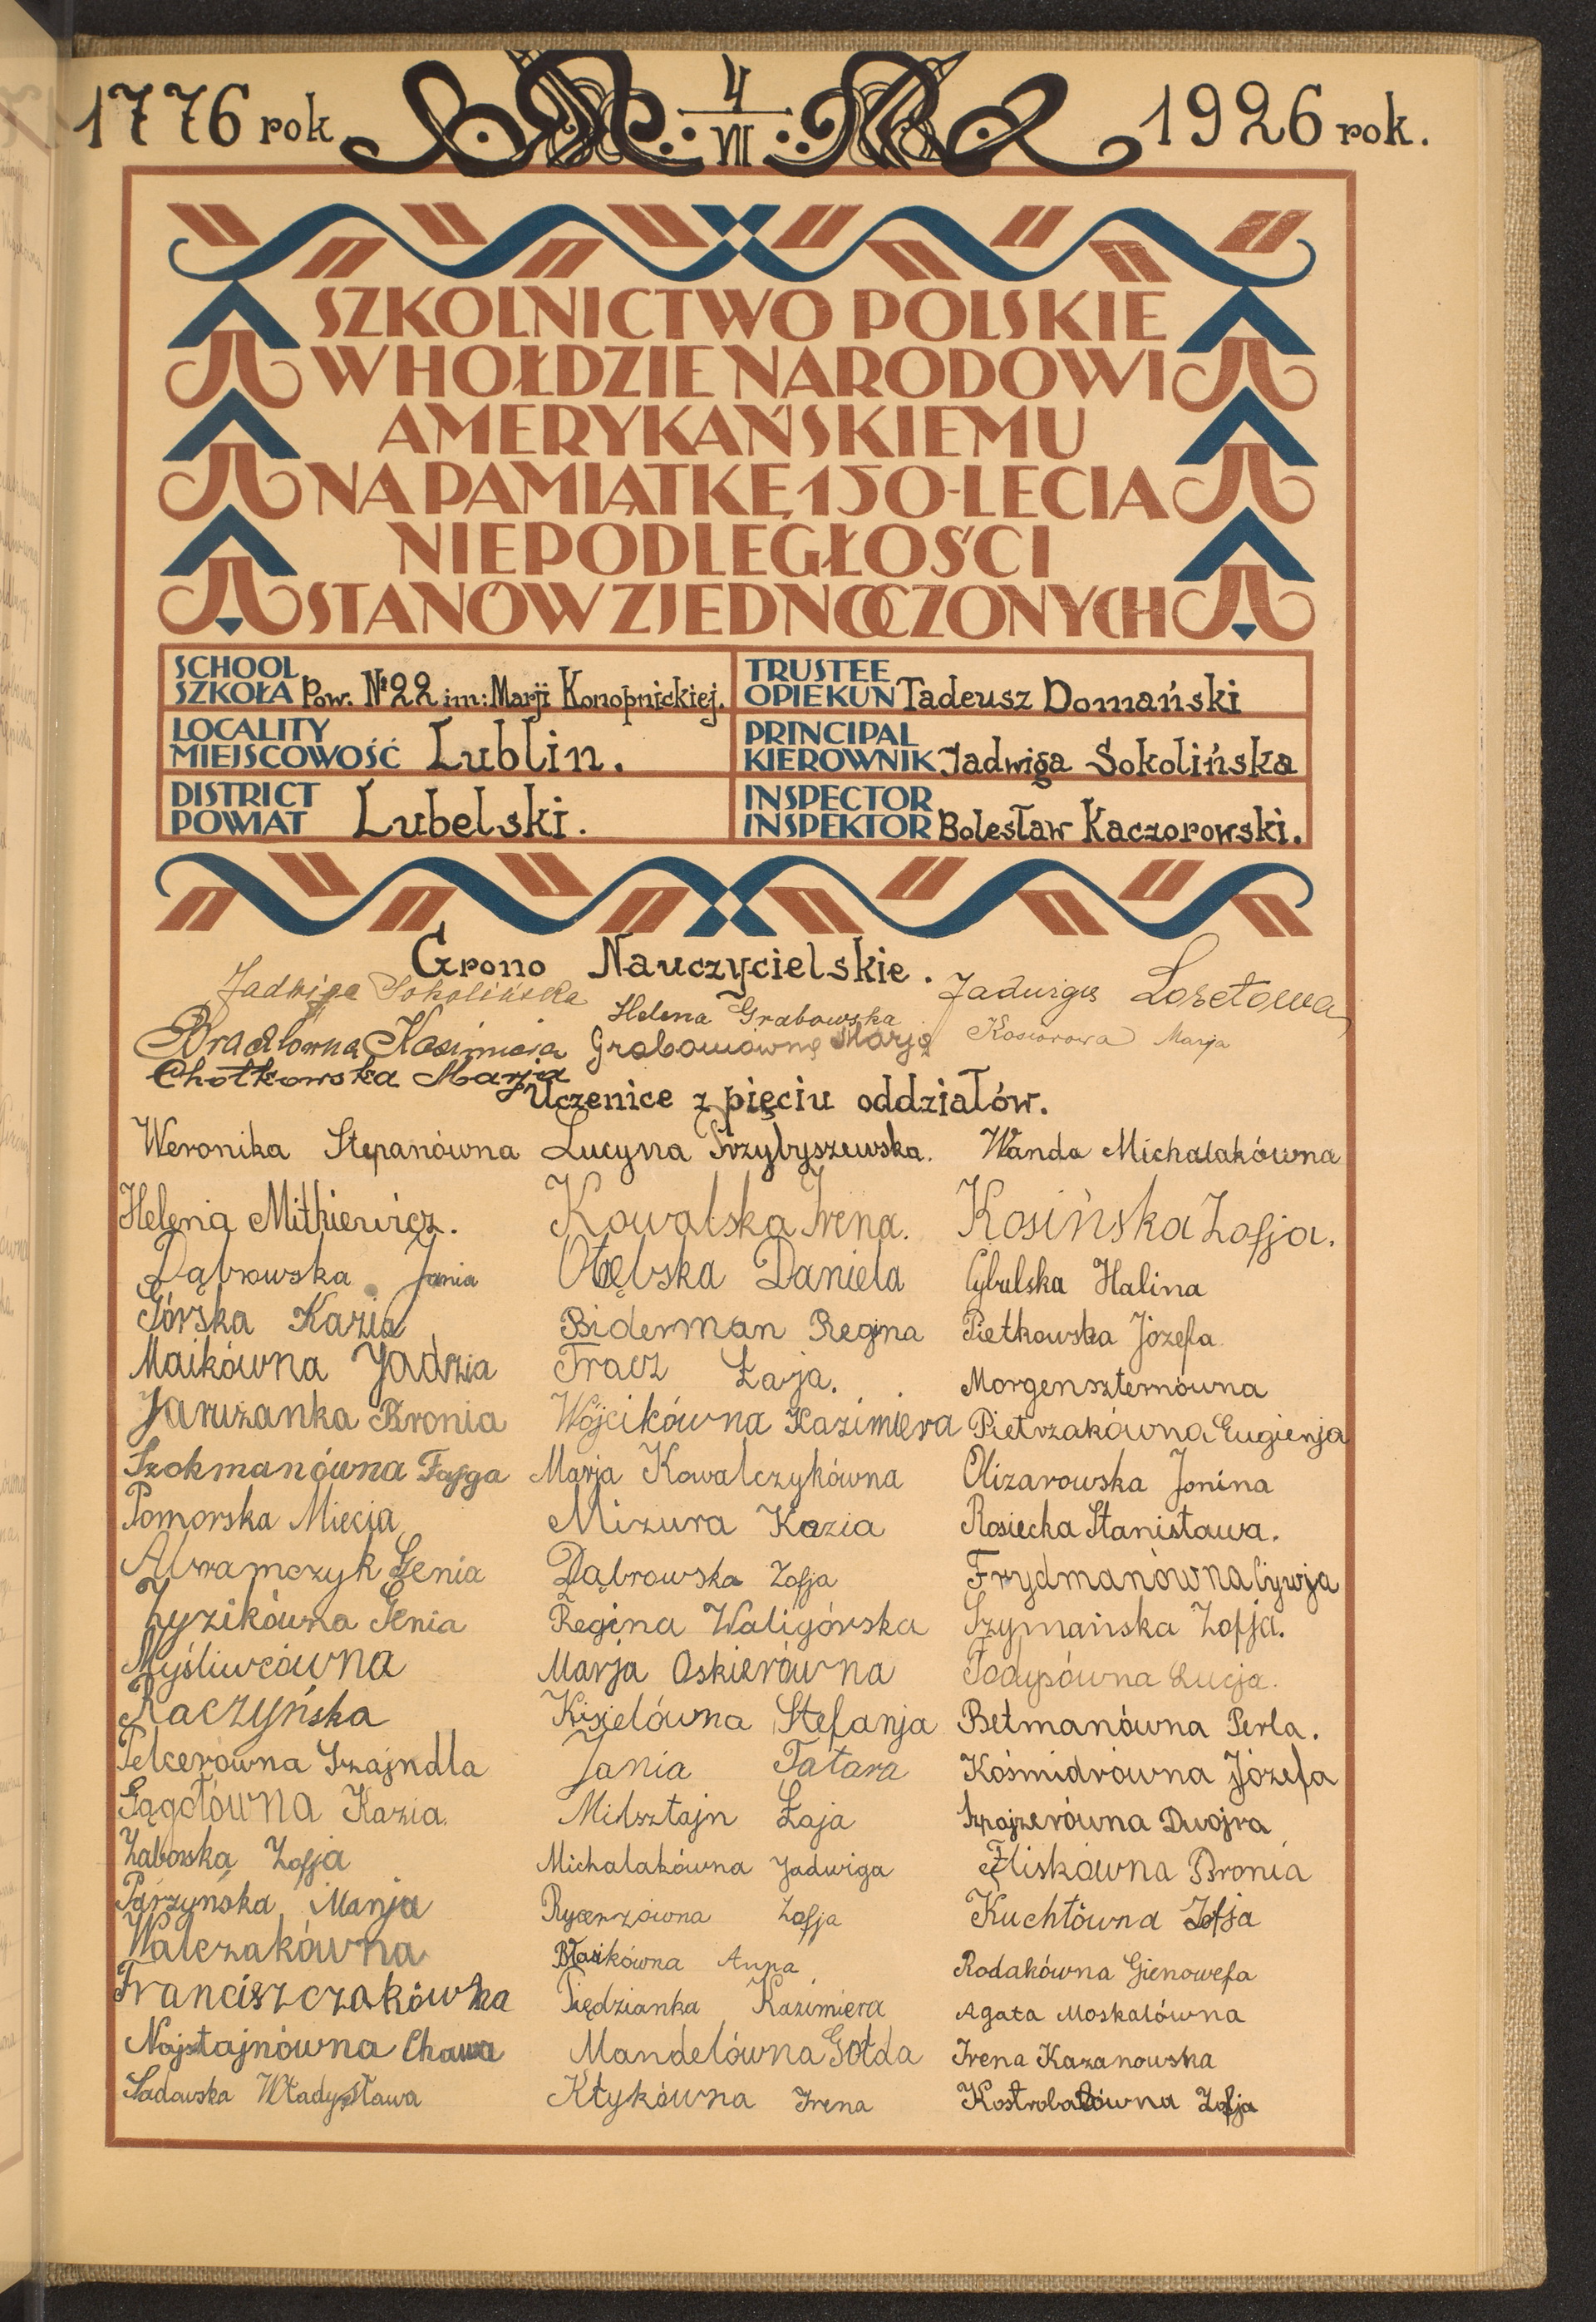 1776 rok 4/VII 1926 rok.
SZKOLNICTWO POLSKIE
W HOŁDZIE NARODOWI
AMERYKAŃSKIEMU
NA PAMIĄTKĘ 150-LECIA
NIEPODLEGŁOŚCI
STANÓW ZJEDNOCZONYCH
SCHOOL
SZKOŁA Pow. № 22 im: Marji Konopnickiej.
TRUSTEE
OPIEKUN Tadeusz Domański
LOCALITY
MIEJSCOWOŚĆ Lublin.
PRINCIPAL
KIEROWNIK Jadwiga Sokolińska
DISTRICT
POWIAT Lubelski.
INSPECTOR
INSPEKTOR Bolesław Kaczorowski.
Grono Nauczycielskie.
Jadwiga Sokolińska Helena Grabowska Jadwiga
Kazimiera Grabowiówna Marja Kosiorowa Marja
Chotkowska Marja
Uczenice z pięciu oddziałów.
Weronika Stepanówna Lucyna Przybyszewska. Wanda Michalakówna
Helena Mitkiewicz. Kowalska Irena. Kosińska Zofja.
Dąbrowska Jania Otębska Daniela Cybulska Halina
Górska Kazia Biderman Regina Pietkowska Józefa
Maikówna Jadzia Tracz Łaja. Morgenszternówna
Jarużanka Bronia Wójcikówna Kazimiera Pietrzakówna Eugienja
Szokmanówna Fajga Marja Kowalczykówna Olizarowska Jonina
Pomorska Miecia Mizura Kazia Rosiecka Stanisława.
Abramczyk Genia Dąbrowska Zofja Frydmanówna Cywja
Zyzikówna Genia Regina Waligórska Szymańska Zofja.
Myśliwcówna Marja Oskierówna Łucja.
Raczyńska Kisielówna Stefanja Betmanówna Perla.
Pelcerówna Szajndla Jania Tatara Kośmidrówna Józefa
Gągołówna Kazia. Midsztajn Łaja Szpajzerówna Dwojra
Zaborska Zofja Michalakówna Jadwiga Fliskówna Bronia
Parzyńska Marja Rycerzówna Zofja Kuchtówna Zofja
Walczakówna Błasikówna Anna Rodakówna Gienowefa
Franciszczakówna Piędzianka Kazimiera Agata Moskalówna
Najsztajnówna Chawa Mandelówna Gołda Irena Kazanowska
Sadowska Władysława Kłykówna Irena Zofja